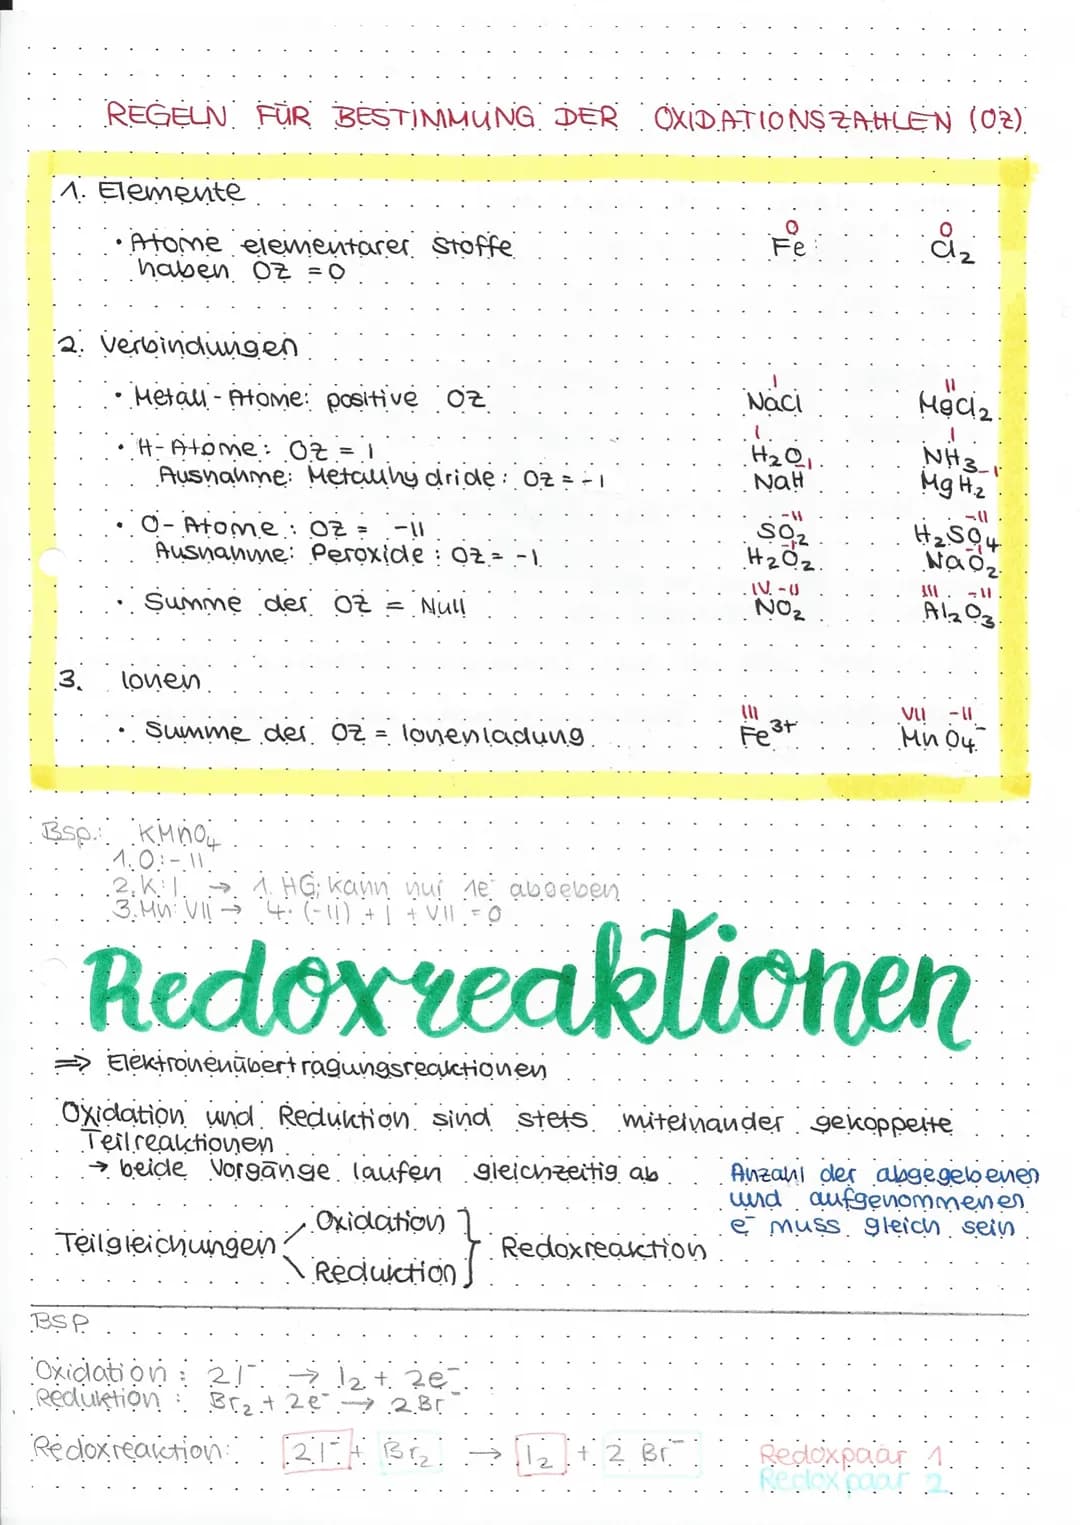 REGELN FÜR BESTIMMUNG DER OXIDATIONSZAHLEN (OZ)
1. Elemente
• Atome elementarer Stoffe
haben OZ = 0
0 0
Fe Cl₂
2. Verbindungen
• Metall-Atome: positive OZ
I II
NaCl MgCl₂
• H-Atome: OZ = I
I I
H₂O NH₃
Ausnahme: Metallhydride: OZ = -I
-I -I
NaH MgH₂
• O-Atome: OZ = -II
-II -II
SO₂ H₂SO₄
Ausnahme: Peroxide: OZ = -I
-I -I
H₂O₂ NaO₂
• Summe der OZ = Null
IV -II III -II
NO₂ Al₂O₃
3. Ionen
• Summe der OZ = Ionenladung
III VII -II
Fe³⁺ MnO₄⁻
Bsp.: KMnO₄
1. O: -II
2. K: I → 1. HG; kann nur 1e⁻ abgeben
3. Mn: VII → 4·(-II) + I + VII = 0
Redoxreaktionen
⇒ Elektronenübertragungsreaktionen
Oxidation und Reduktion sind stets miteinander gekoppelte
Teilreaktionen
→ beide Vorgänge laufen gleichzeitig ab
Anzahl der abgegebenen
und aufgenommenen
e⁻ muss gleich sein
Oxidation
Teilgleichungen } Redoxreaktion
Reduktion
BSP
Oxidation: 2I⁻ → I₂ + 2e⁻
Reduktion: Br₂ + 2e⁻ → 2Br⁻
Redoxreaktion: 2I⁻ + Br₂ → I₂ + 2 Br⁻
Redoxpaar 1
Redoxpaar 2